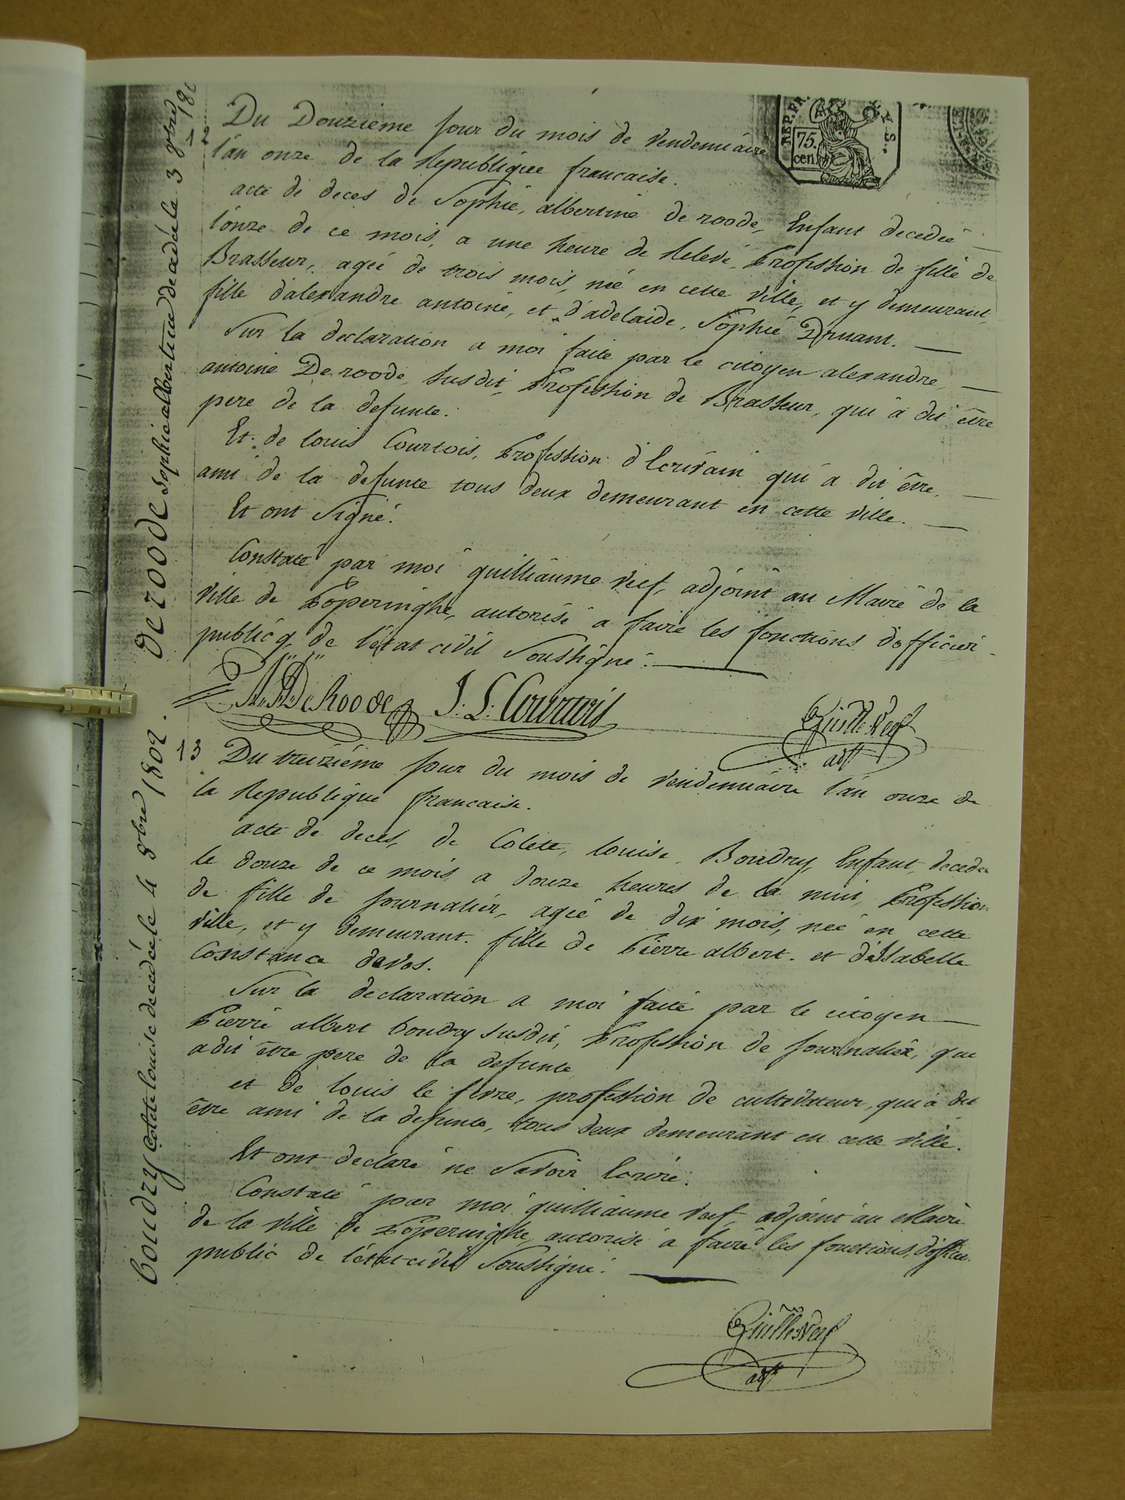 Du Douzième jour du mois de vendemiaire
l'an onze de la Republiqúe francaise.
acte de deces de Sophie, albertine de roode, Enfant decedée
l'onze de ce mois, a une heure de Relevé, Profession de fille de
Brasseur, agée de trois mois, née en cette ville, et y demeurant,
fille d'alexandre antoine, et d'adelaide, Sophie Druant.
Sur la declaration a moi faite par le citoyen alexandre,
antoine De roode, susdit, Profession de Brasseur, qui a dit être
pere de la defunte.
Et de louis Courtois, Profession d'Ecrivain qui a dit être,
ami de la defunte tous deux demeurant en cette ville.
Et ont Signé.
Constaté par moi guilliaume Verf, adjoint au Maire de la
ville de Poperinghe, autorisé a faire les fonctions d'officier
publicq de l'état civil Soussigné.
A. A. De Roode J: L: Courtois
Guill: Verf
adjt
13 Du treizième jour du mois de vendemiaire l'an onze de
la Republique francaise.
acte de deces, de Colete, louise, Boudry, Enfant, decedée
le douze de ce mois, a douze heures de la nuit, Profession
de fille de journalier, agée de dix mois, née en cette
ville, et y demeurant. fille de Pierre albert. et d'isabelle
Constance devos.
Sur la declaration a moi faite par le citoyen
Pierre albert boudry susdit, Profession de journalier, qui
a dit être pere de la defunte
et de louis le fevre, profession de cultivateur, qui a dit
être ami de la defunte, tous deux demeurant en cette ville.
Et ont declaré ne Savoir Ecrire.
Constaté par moi guilliaume Verf, adjoint au Maire
de la ville de Poperinghe, autorisé a faire les fonctions d'officier
public de l'état civil Soussigné.
Guill: Verf
adjt
De roode Sophie albertine decedée le 3 8bre
Boudry Colette louise decedée le 4 8bre 1802.
REP. FRA.
75.
cen.